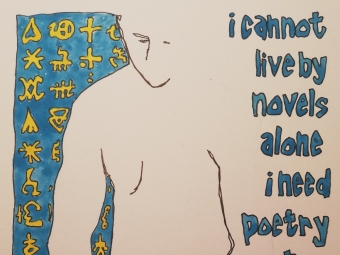 i cannot
live by
novels
alone
i need
poetry